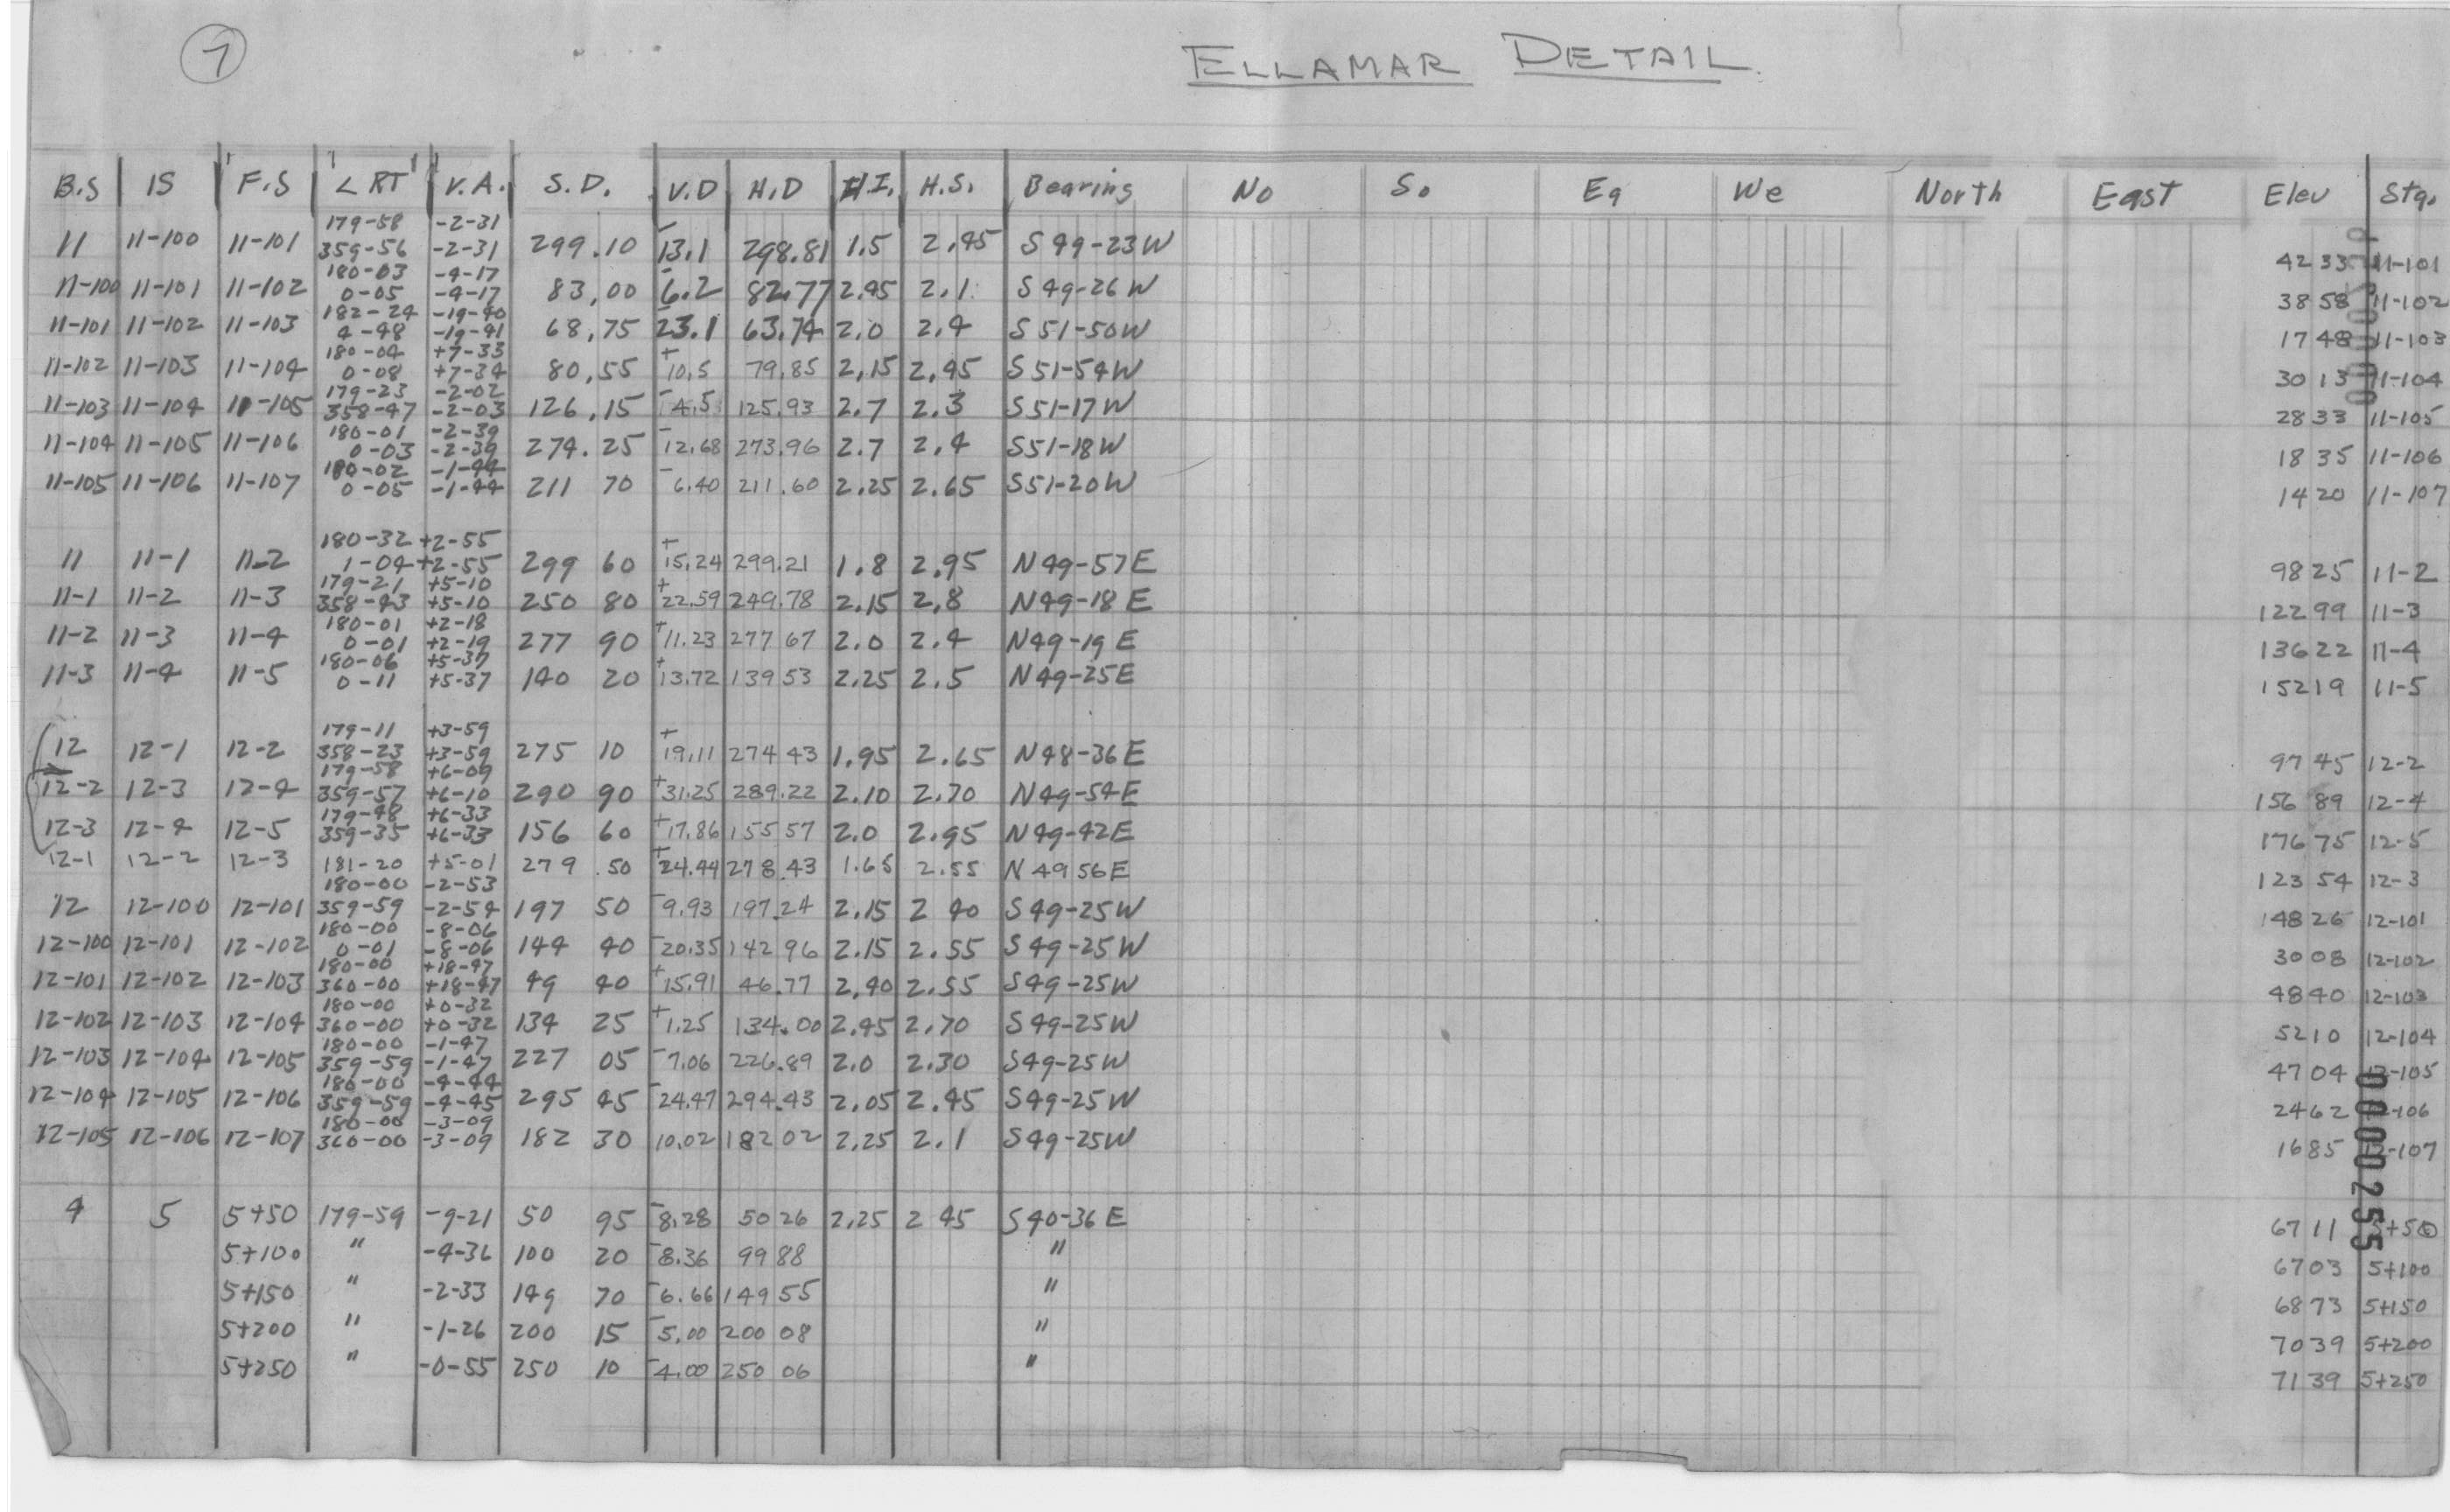 7
ELLAMAR DETAIL.
B.S IS F.S ∠ RT V.A. S.D. V.D H.D H.I. H.S. Bearing No So Ea We North East Elev Sta.
179-58 -2-31
11 11-100 11-101 359-56 -2-31 299.10 -13.1 298.81 1.5 2.45 S 49-23 W 42 33 11-101
180-03 -4-17
11-100 11-101 11-102 0-05 -4-17 83,00 -6.2 82.77 2.45 2.1 S 49-26 W 38 58 11-102
182-24 -19-40
11-101 11-102 11-103 4-48 -19-41 68,75 -23.1 63.74 2.0 2.4 S 51-50 W 17 48 11-103
180-04 +7-33
11-102 11-103 11-104 0-08 +7-34 80,55 +10.5 79.85 2,15 2.45 S 51-54 W 30 13 11-104
179-23 -2-02
11-103 11-104 11-105 358-47 -2-03 126.15 -4.5 125.93 2.7 2.3 S 51-17 W 28 33 11-105
180-01 -2-39
11-104 11-105 11-106 0-03 -2-39 274.25 -12.68 273.96 2.7 2.4 S 51-18 W 18 35 11-106
180-02 -1-44
11-105 11-106 11-107 0-05 -1-44 211 70 -6.40 211.60 2.25 2.65 S 51-20 W 14 20 11-107
180-32 +2-55
11 11-1 11-2 1-04 +2-55 299 60 +15.24 299.21 1.8 2.95 N 49-57 E 98 25 11-2
179-21 +5-10
11-1 11-2 11-3 358-43 +5-10 250 80 +22.59 249.78 2.15 2.8 N 49-18 E 122 99 11-3
180-01 +2-18
11-2 11-3 11-4 0-01 +2-19 277 90 +11.23 277 67 2.0 2.4 N 49-19 E 136 22 11-4
180-06 +5-37
11-3 11-4 11-5 0-11 +5-37 140 20 +13.72 139 53 2.25 2.5 N 49-25 E 152 19 11-5
179-11 +3-59
12 12-1 12-2 358-23 +3-59 275 10 +19.11 274 43 1.95 2.65 N 48-36 E 97 45 12-2
179-58 +6-09
12-2 12-3 12-4 359-57 +6-10 290 90 +31.25 289.22 2.10 2.70 N 49-54 E 156 89 12-4
179-48 +6-33
12-3 12-4 12-5 359-35 +6-33 156 60 +17.86 155 57 2.0 2.95 N 49-42 E 176 75 12-5
12-1 12-2 12-3 181-20 +5-01 279.50 +24.44 278.43 1.65 2.55 N 49 56 E 123 54 12-3
180-00 -2-53
12 12-100 12-101 359-59 -2-54 197 50 -9.93 197.24 2.15 2 40 S 49-25 W 148 26 12-101
180-00 -8-06
12-100 12-101 12-102 0-01 -8-06 144 40 -20.35 142 96 2.15 2.55 S 49-25 W 30 08 12-102
180-00 +18-47
12-101 12-102 12-103 360-00 +18-47 49 40 +15.91 46.77 2,40 2.55 S 49-25 W 48 40 12-103
180-00 +0-32
12-102 12-103 12-104 360-00 +0-32 134 25 +1.25 134.00 2.45 2.70 S 49-25 W 52 10 12-104
180-00 -1-47
12-103 12-104 12-105 359-59 -1-47 227 05 -7.06 226.89 2.0 2.30 S 49-25 W 47 04 12-105
180-00 -4-44
12-104 12-105 12-106 359-59 -4-45 295 45 -24.47 294.43 2.05 2.45 S 49-25 W 24 62 12-106
180-00 -3-09
12-105 12-106 12-107 360-00 -3-09 182 30 10.02 182 02 2.25 2.1 S 49-25 W 16 85 12-107
4 5 5+50 179-59 -9-21 50 95 -8.28 50 26 2.25 2 45 S 40-36 E 67 11 5+50
5+100 " -4-36 100 20 -8.36 99 88 " 67 03 5+100
5+150 " -2-33 149 70 -6.66 149 55 " 68 73 5+150
5+200 " -1-26 200 15 -5.00 200 08 " 70 39 5+200
5+250 " -0-55 250 10 -4.00 250 06 " 71 39 5+250
0000255